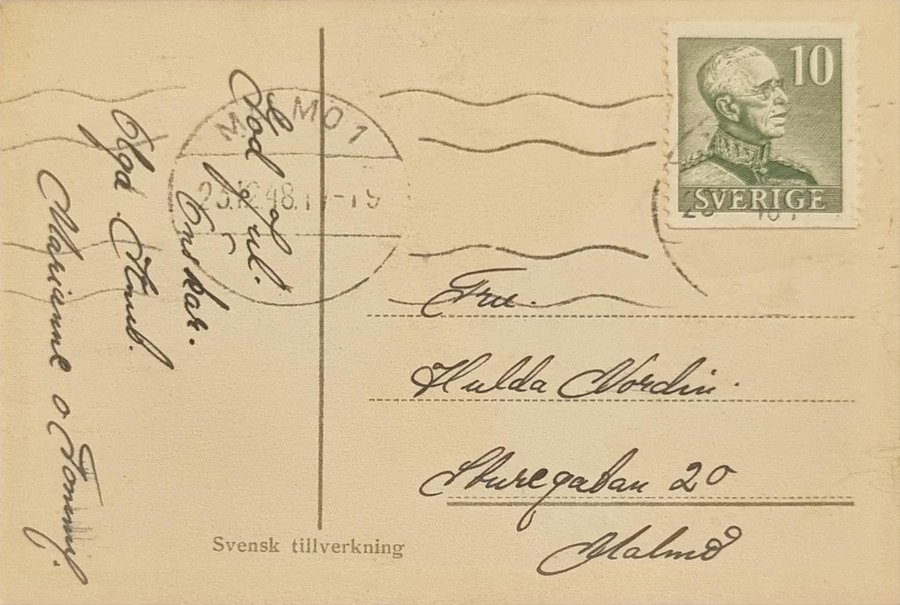 God Jul.
Önskar.
Olga. Amb.
Marianne o Tommy.
MALMÖ 1
23.12.48.17-19
10
SVERIGE
Fru.
Hulda Nordin.
Sturegatan 20
Malmö
Svensk tillverkning